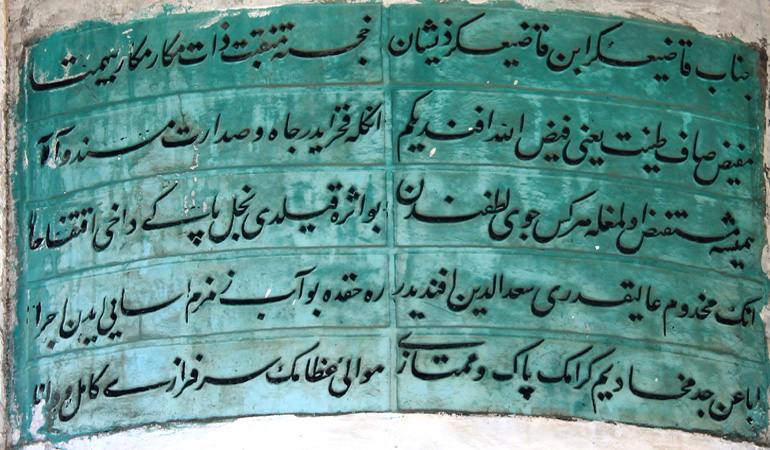 جناب قاضیعسکر ابن قاضیعسکر ذیشان خجسته منقبت ذات مکارمکار بیهمتا
مفیض صاف طینت یعنی فیض الله افندیکم انکله فخر ایدر جاه و صدارت مسند والا
همیشه مستفیض اولمغله هرکس جوی لطفندن بو اثره قیلدی نجل پاکی داخی اقتفا حالا
انک مخدوم عالیقدری سعدالدین افندیدر ره حقده بو آب زمزم اسایی ایدن اجرا
اباعن جد مخادیم کرامک پاک و ممتازی موالئ عظامک سرفرازی کامل و دانا